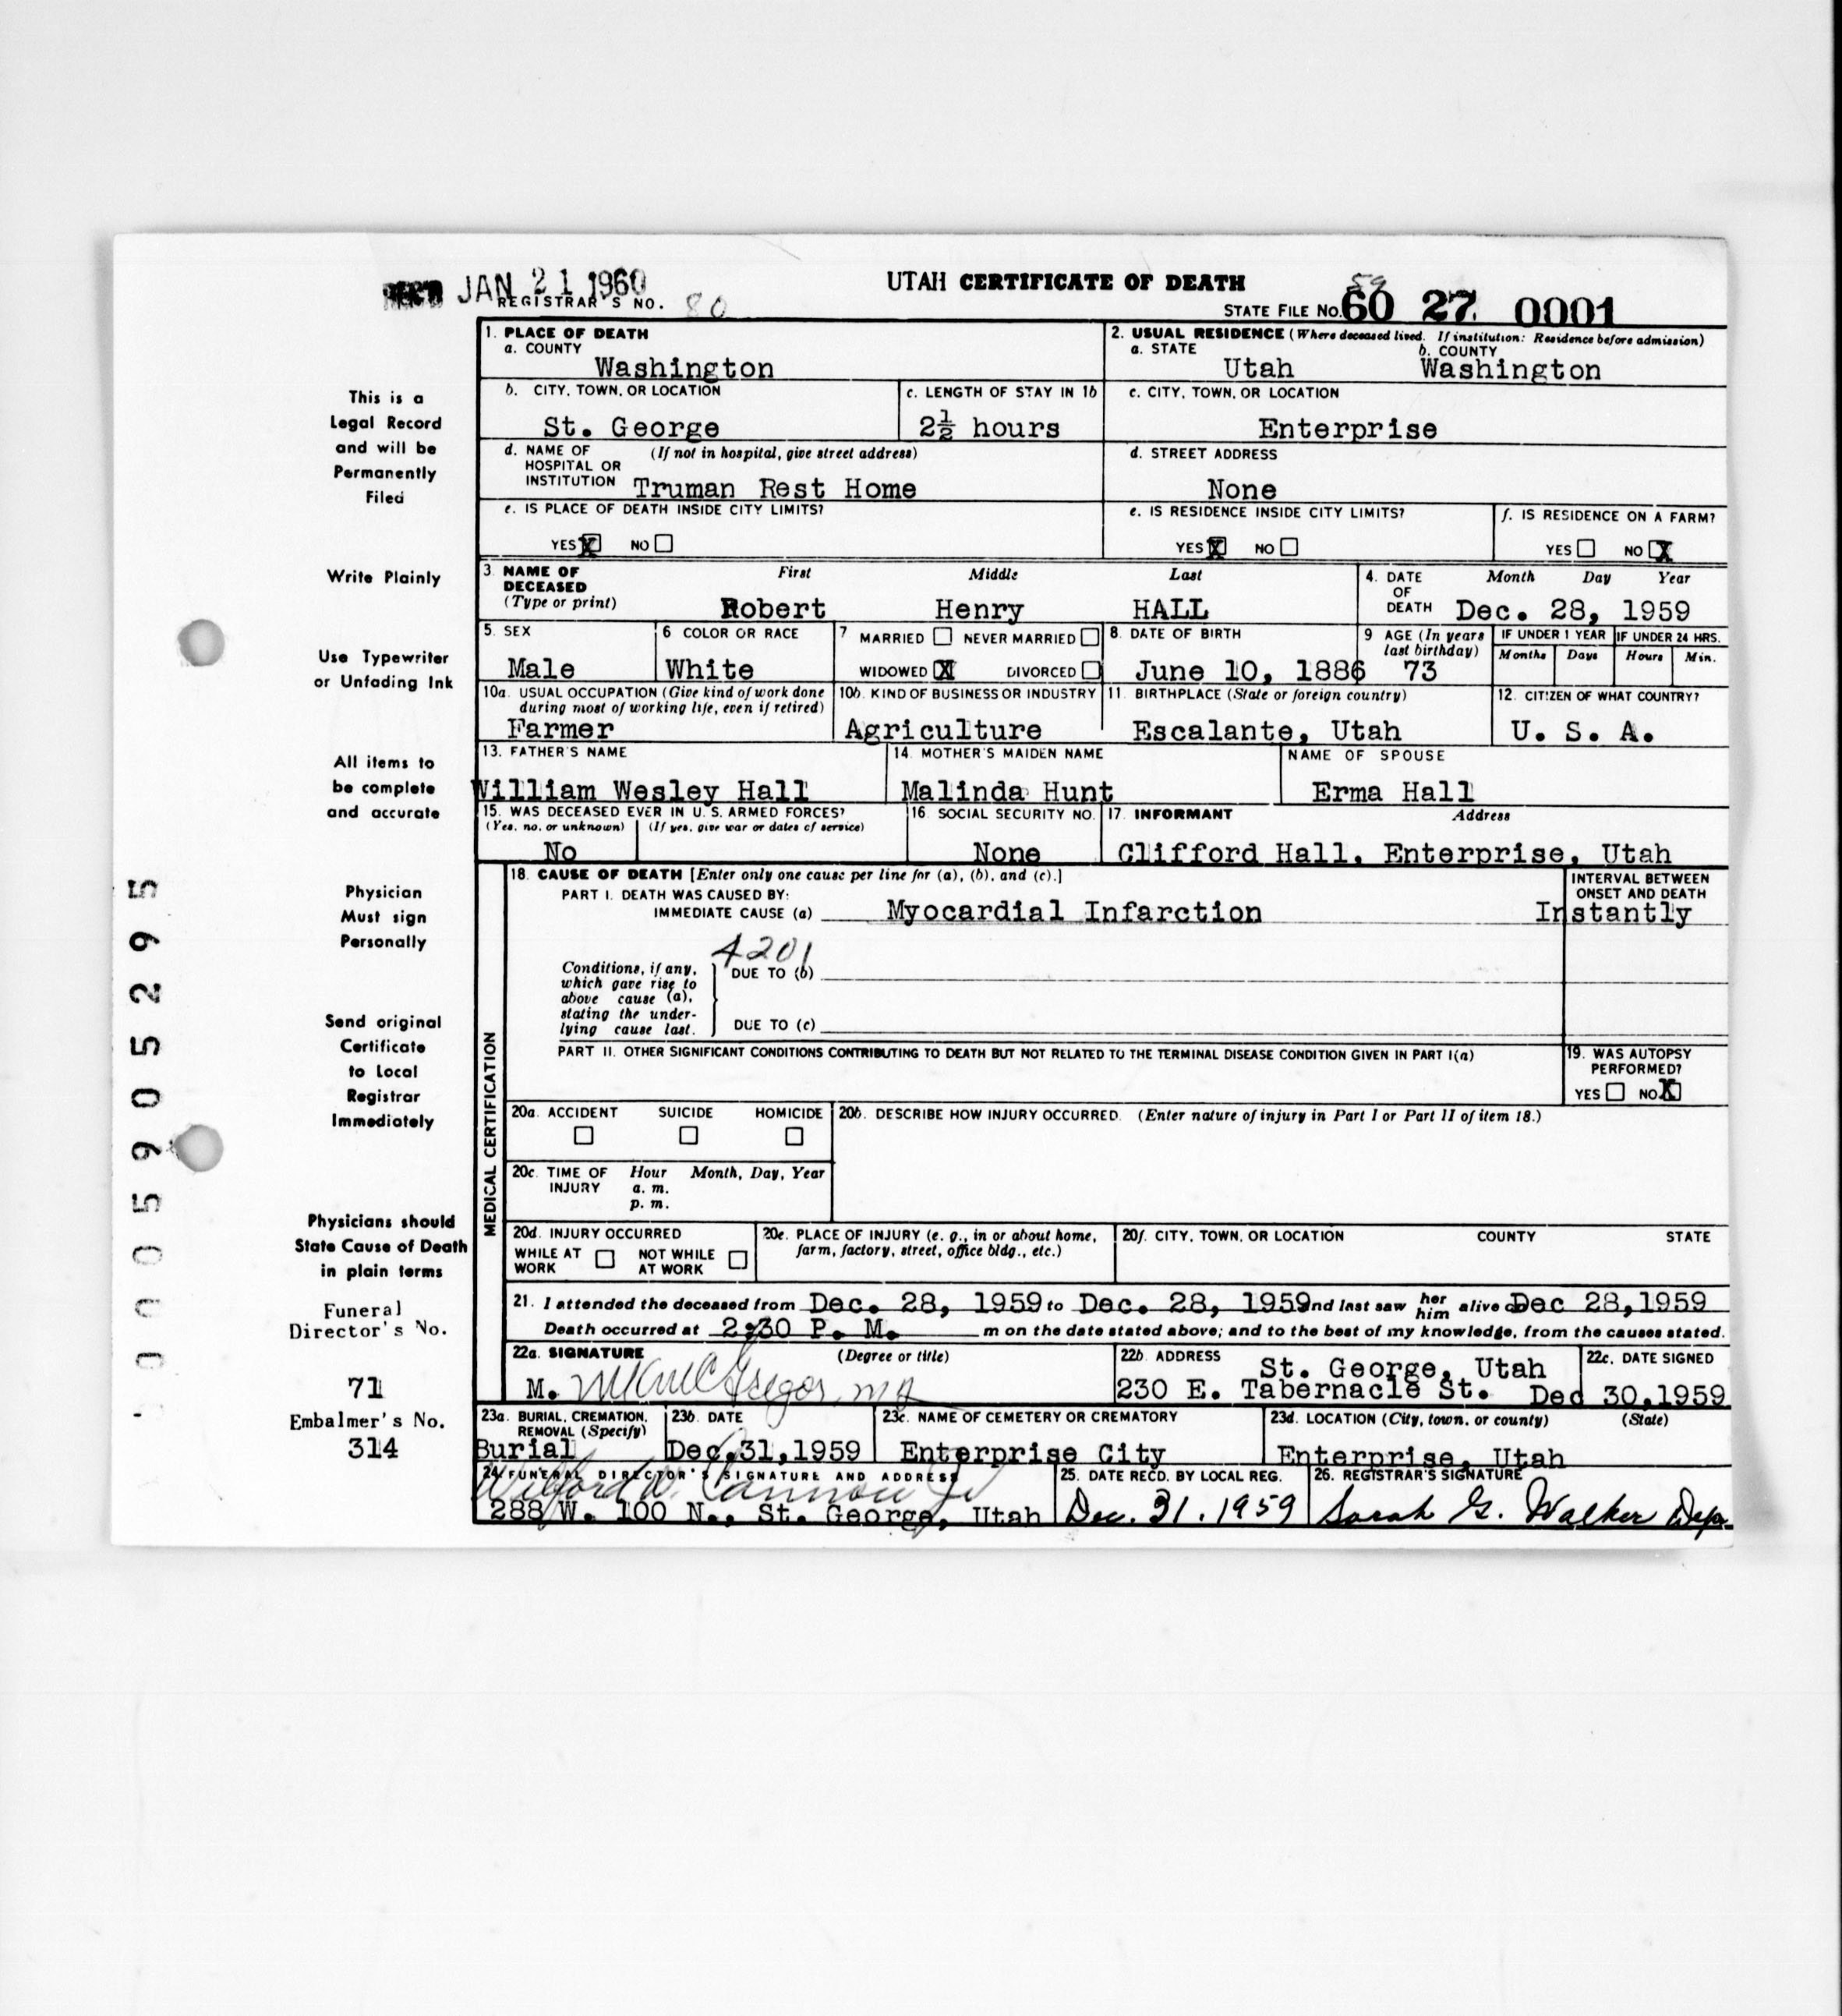 REC'D JAN 21 1960
UTAH CERTIFICATE OF DEATH
REGISTRAR'S NO. 80
59
STATE FILE NO. 60 27 0001
1. PLACE OF DEATH
a. COUNTY
Washington
2. USUAL RESIDENCE (Where deceased lived. If institution: Residence before admission)
a. STATE b. COUNTY
Utah Washington
b. CITY, TOWN, OR LOCATION
St. George
c. LENGTH OF STAY IN 1b
2½ hours
c. CITY, TOWN, OR LOCATION
Enterprise
d. NAME OF HOSPITAL OR INSTITUTION (If not in hospital, give street address)
Truman Rest Home
d. STREET ADDRESS
None
e. IS PLACE OF DEATH INSIDE CITY LIMITS?
YES X NO
e. IS RESIDENCE INSIDE CITY LIMITS?
YES X NO
f. IS RESIDENCE ON A FARM?
YES NO X
3. NAME OF DECEASED (Type or print)
First Middle Last
Robert Henry HALL
4. DATE OF DEATH Month Day Year
Dec. 28, 1959
5. SEX
Male
6 COLOR OR RACE
White
7 MARRIED NEVER MARRIED
WIDOWED X DIVORCED
8. DATE OF BIRTH
June 10, 1886
9 AGE (In years last birthday)
73
IF UNDER 1 YEAR
Months Days
IF UNDER 24 HRS.
Hours Min.
10a. USUAL OCCUPATION (Give kind of work done during most of working life, even if retired)
Farmer
10b. KIND OF BUSINESS OR INDUSTRY
Agriculture
11. BIRTHPLACE (State or foreign country)
Escalante, Utah
12. CITIZEN OF WHAT COUNTRY?
U. S. A.
13. FATHER'S NAME
William Wesley Hall
14. MOTHER'S MAIDEN NAME
Malinda Hunt
NAME OF SPOUSE
Erma Hall
15. WAS DECEASED EVER IN U. S. ARMED FORCES?
(Yes, no, or unknown) (If yes, give war or dates of service)
No
16. SOCIAL SECURITY NO.
None
17. INFORMANT Address
Clifford Hall, Enterprise, Utah
MEDICAL CERTIFICATION
18. CAUSE OF DEATH [Enter only one cause per line for (a), (b), and (c).]
PART I. DEATH WAS CAUSED BY:
IMMEDIATE CAUSE (a) Myocardial Infarction
INTERVAL BETWEEN ONSET AND DEATH
Instantly
4201
Conditions, if any, which gave rise to above cause (a), stating the underlying cause last.
DUE TO (b)
DUE TO (c)
PART II. OTHER SIGNIFICANT CONDITIONS CONTRIBUTING TO DEATH BUT NOT RELATED TO THE TERMINAL DISEASE CONDITION GIVEN IN PART I(a)
19. WAS AUTOPSY PERFORMED?
YES NO X
20a. ACCIDENT SUICIDE HOMICIDE
20b. DESCRIBE HOW INJURY OCCURRED. (Enter nature of injury in Part I or Part II of item 18.)
20c. TIME OF INJURY Hour Month, Day, Year
a. m.
p. m.
20d. INJURY OCCURRED
WHILE AT WORK NOT WHILE AT WORK
20e. PLACE OF INJURY (e. g., in or about home, farm, factory, street, office bldg., etc.)
20f. CITY, TOWN, OR LOCATION COUNTY STATE
21. I attended the deceased from Dec. 28, 1959 to Dec. 28, 1959 and last saw her him alive on Dec 28, 1959
Death occurred at 2:30 P. M. m on the date stated above; and to the best of my knowledge, from the causes stated.
22a. SIGNATURE (Degree or title)
M. McGregor, MD
22b. ADDRESS
St. George, Utah
230 E. Tabernacle St.
22c. DATE SIGNED
Dec 30, 1959
23a. BURIAL, CREMATION, REMOVAL (Specify)
Burial
23b. DATE
Dec. 31, 1959
23c. NAME OF CEMETERY OR CREMATORY
Enterprise City
23d. LOCATION (City, town, or county) (State)
Enterprise, Utah
24. FUNERAL DIRECTOR'S SIGNATURE AND ADDRESS
Wilford W. Cannon Jr
288 W. 100 N., St. George, Utah
25. DATE RECD. BY LOCAL REG.
Dec. 31. 1959
26. REGISTRAR'S SIGNATURE
Sarah G. Walker Dep.
This is a
Legal Record
and will be
Permanently
Filed
Write Plainly
Use Typewriter
or Unfading Ink
All items to
be complete
and accurate
Physician
Must sign
Personally
Send original
Certificate
to Local
Registrar
Immediately
Physicians should
State Cause of Death
in plain terms
Funeral
Director's No.
71
Embalmer's No.
314
005905295